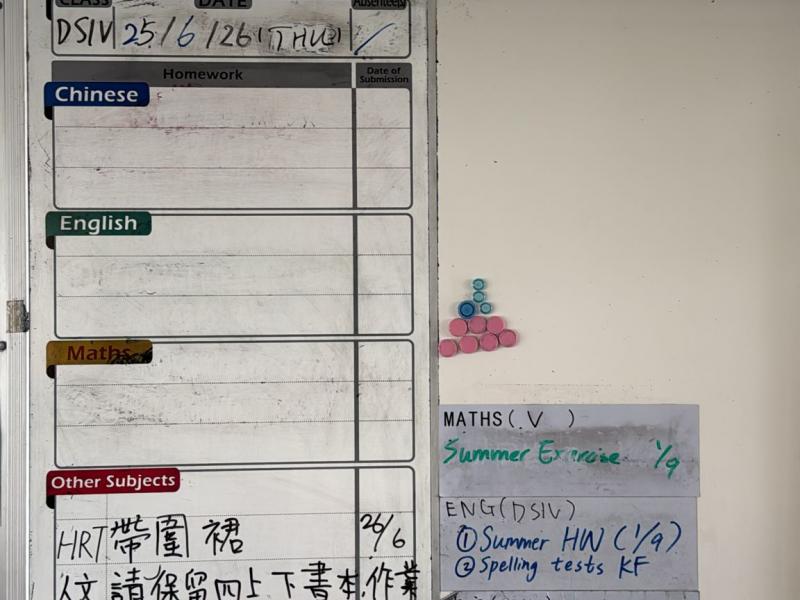 CLASS DATE Absentee(s)
DSIV 25/6/26 (THU) /
Homework Date of Submission
Chinese
English
Maths
Other Subjects
HRT 帶圍裙 26/6
人文 請保留四上下書本,作業
MATHS( V )
Summer Exercise 1/9
ENG(DSIV)
① Summer HW (1/9)
② Spelling tests KF